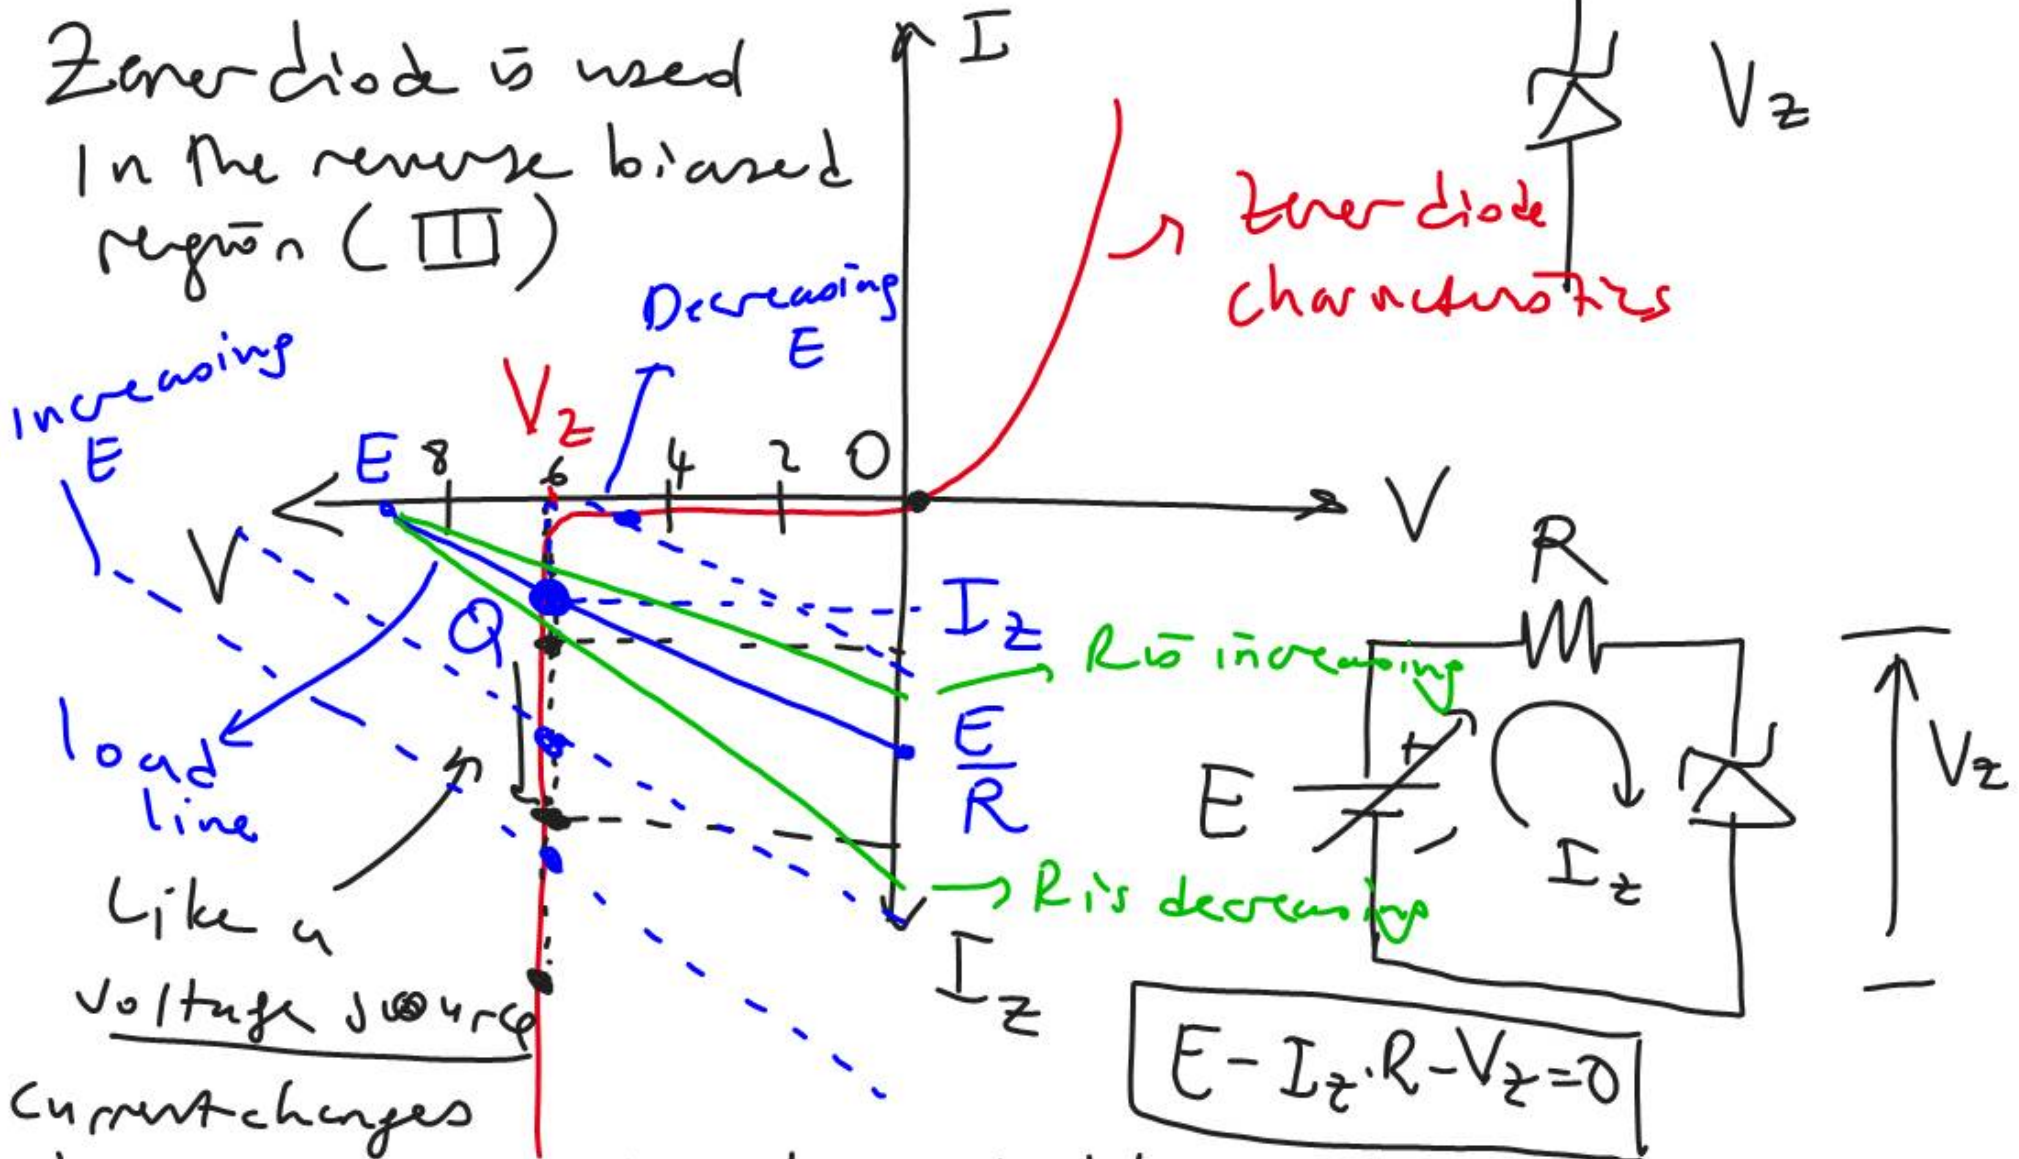 Zener diode is used
In the reverse biased
region (III)
I
Vz
Zener diode
characteristics
Decreasing
E
Increasing
E
Vz
E 8 6 4 2 0
V
V
Q
Iz
R is increasing
E
R
load
line
R is decreasing
Iz
Like a
voltage source
Current changes
R
E
+
-
Iz
Vz
E - Iz.R - Vz = 0